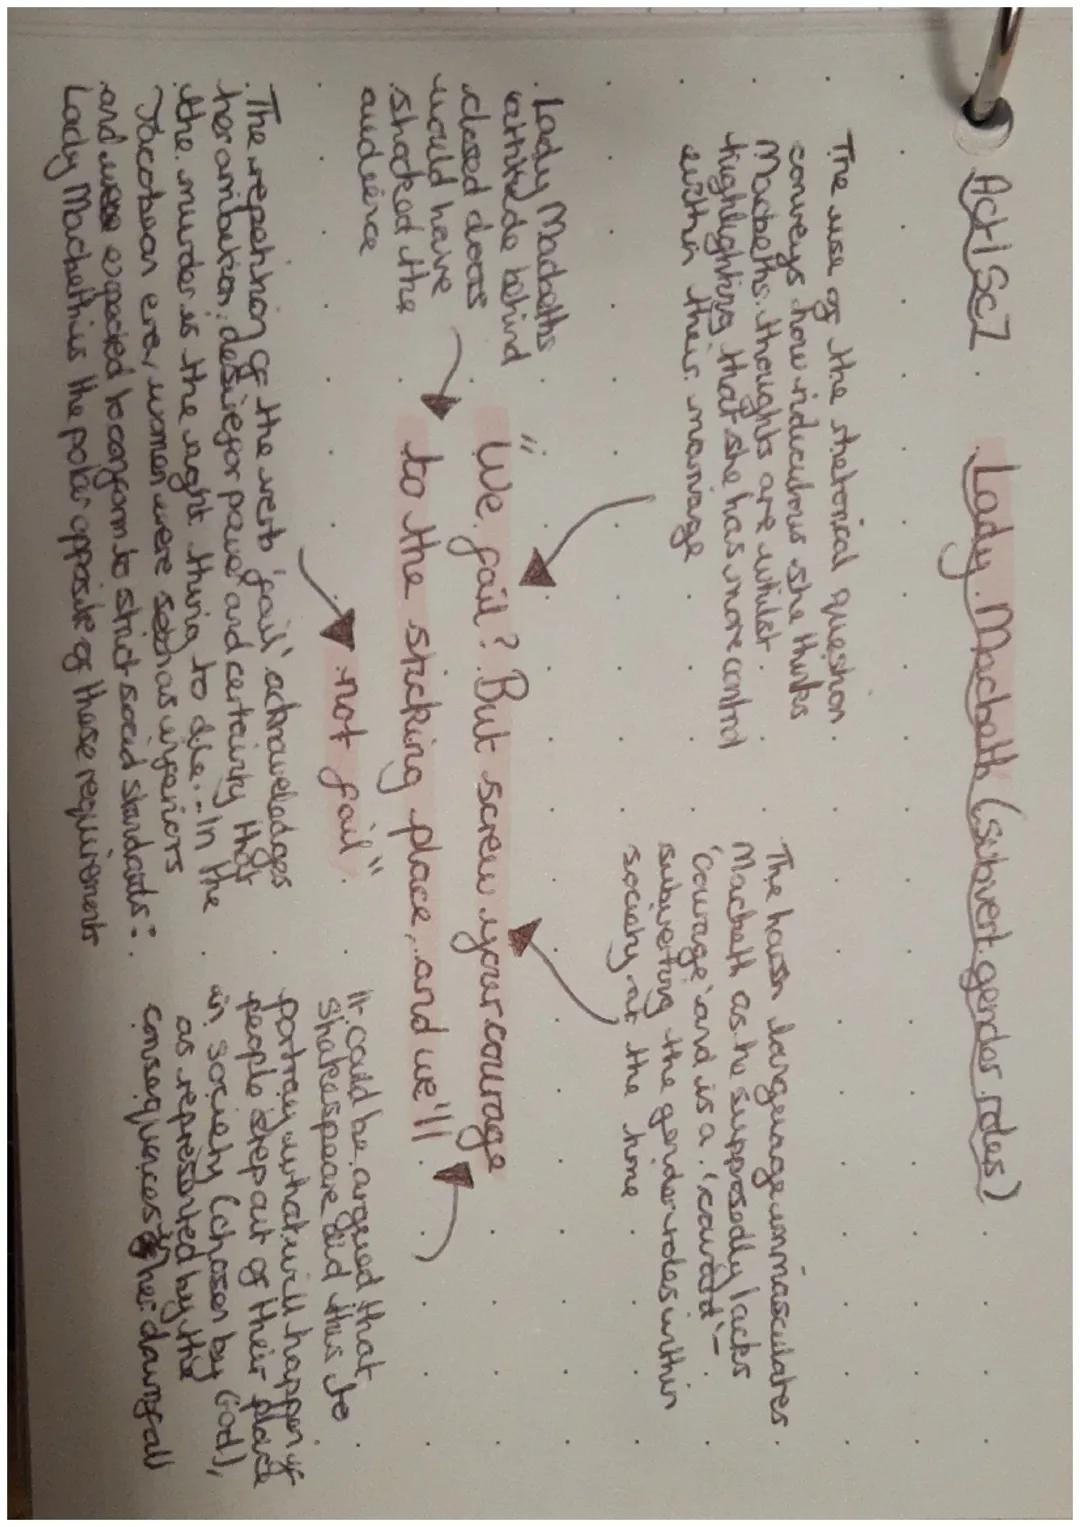 Act 1 Sc7
Lady Macbeth (subvert gender roles)
The use of the rhetorical question
conveys how ridiculous she thinks
Macbeths thoughts are whilst
highlighting that she has more control
within their marriage
The harsh language unmasculates
Macbeth as he supposedly lacks
'courage' and is a 'coward' -
subverting the gender roles within
society at the home
Lady Macbeths
attitude behind
closed doors
would have
shocked the
audience
"We fail? But screw your courage
to the sticking place, and we'll
not fail"
The repetition of the verb 'fail' acknowledges
her ambition; desire for power and certainty that
the murder is the right thing to do. - In the
Jacobean era, women were seen as inferiors
and were expected to conform to strict social standards:
Lady Macbeth is the polar opposite of these requirements
It could be argued that
Shakespeare did this to
portray what will happen if
people step out of their place
in society (chosen by God),
as represented by the
consequences of her downfall